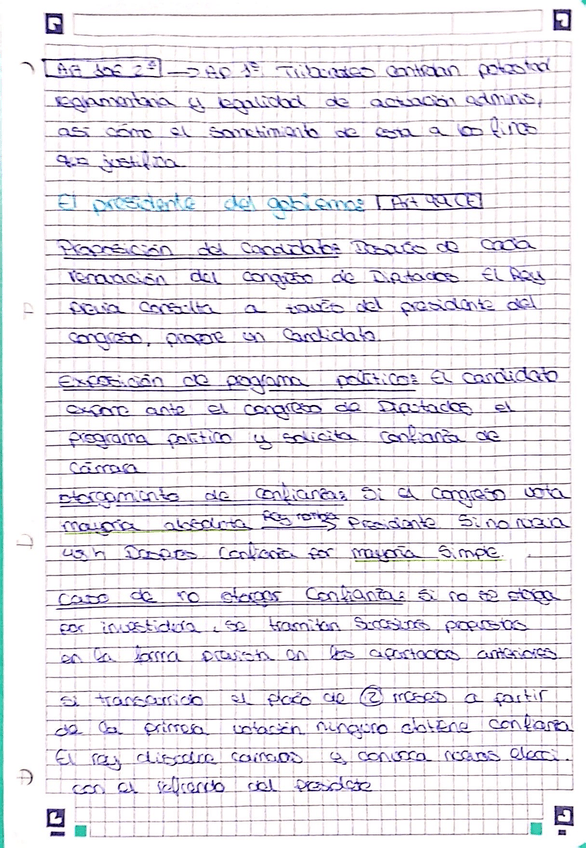 Art 106 2º → AP 1º Tribunales controlan potestad
reglamentaria y legalidad de actuación adminis,
así cómo el sometimiento de esta a los fines
que justifica
El presidente del gobierno: Art 99 CE
Proposición del Candidato: Después de cada
renovación del congreso de Diputados El Rey
previa consulta a través del presidente del
congreso, propone un Candidato.
Exposición de programa político: El candidato
expone ante el congreso de Diputados el
programa político y solicita confianza de
cámara
otorgamiento de confianza: Si el congreso vota
mayoría absoluta Rey nombra Presidente Si no nueva
48h Después Confianza por mayoría Simple.
Caso de no otorgar Confianza: Si no se otorga
por investidura, se tramitan Sucesivas propuestas
en la forma prevista en los apartados anteriores
Si transcurrido el plazo de 2 meses a partir
de la primera votación ninguno obtiene confianza
El rey disuelve cámaras y convoca nuevas elecci.
con el refrendo del presidente